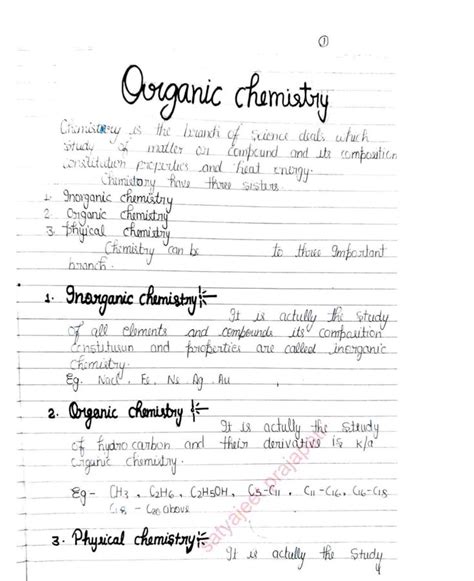 1
Oorganic chemistry
Chemistry is the branch of science deals which
study of matter or compound and its composition
constitution properties and heat energy.
Chemistory have three sisters.
1. Inorganic chemistry
2. Organic chemistry
3. Phyical chemistry
Chemistry can be to three Important
branch.
1. Inorganic chemistry:-
It is actully the study
of all elements and compounds its composition
constitusun and properties are called inorganic
chemistry.
Eg. Nacl, Fe, Ne Ag, Au
2. Organic chemistry :-
It is actully the steudy
of hydrocarbon and their derivative is k/a
organic chemistry.
Eg - CH3, C2H6, C2H5OH, C5-C11, C11-C16, C16-C18
C18 - C20 above
3. Physical chemistry :-
It is actully the study
satyajeet prajapati